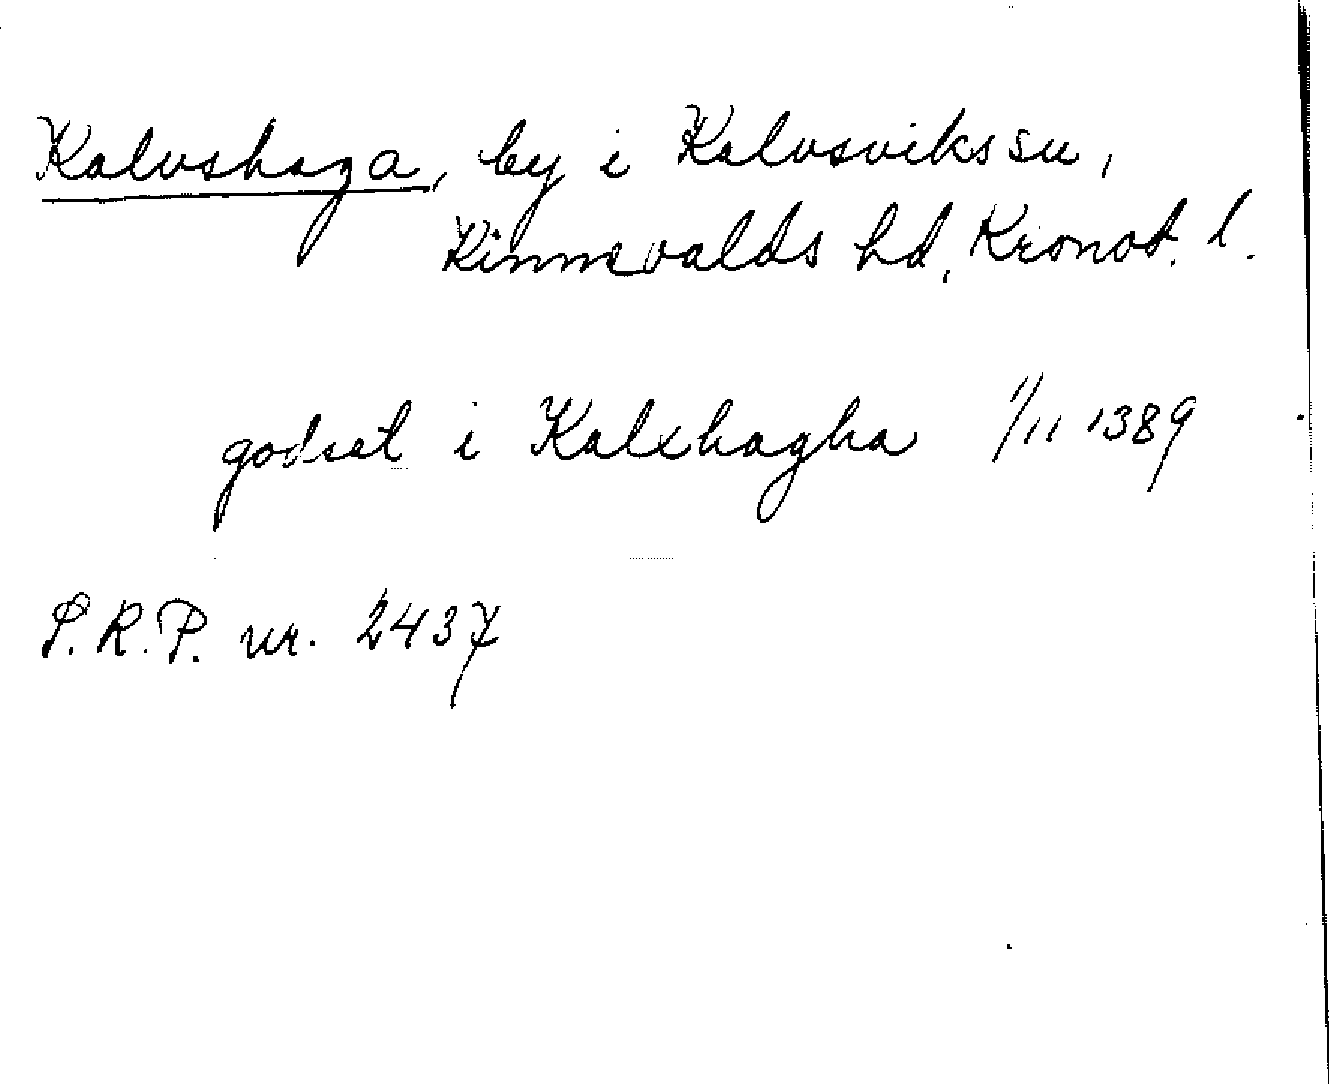 Kalvshaga, by i Kalvsviks sn,
Kinnevalds hd, Kronob. l.
godset i Kalxhagha 1/11 1389
S.R.P. nr. 2437